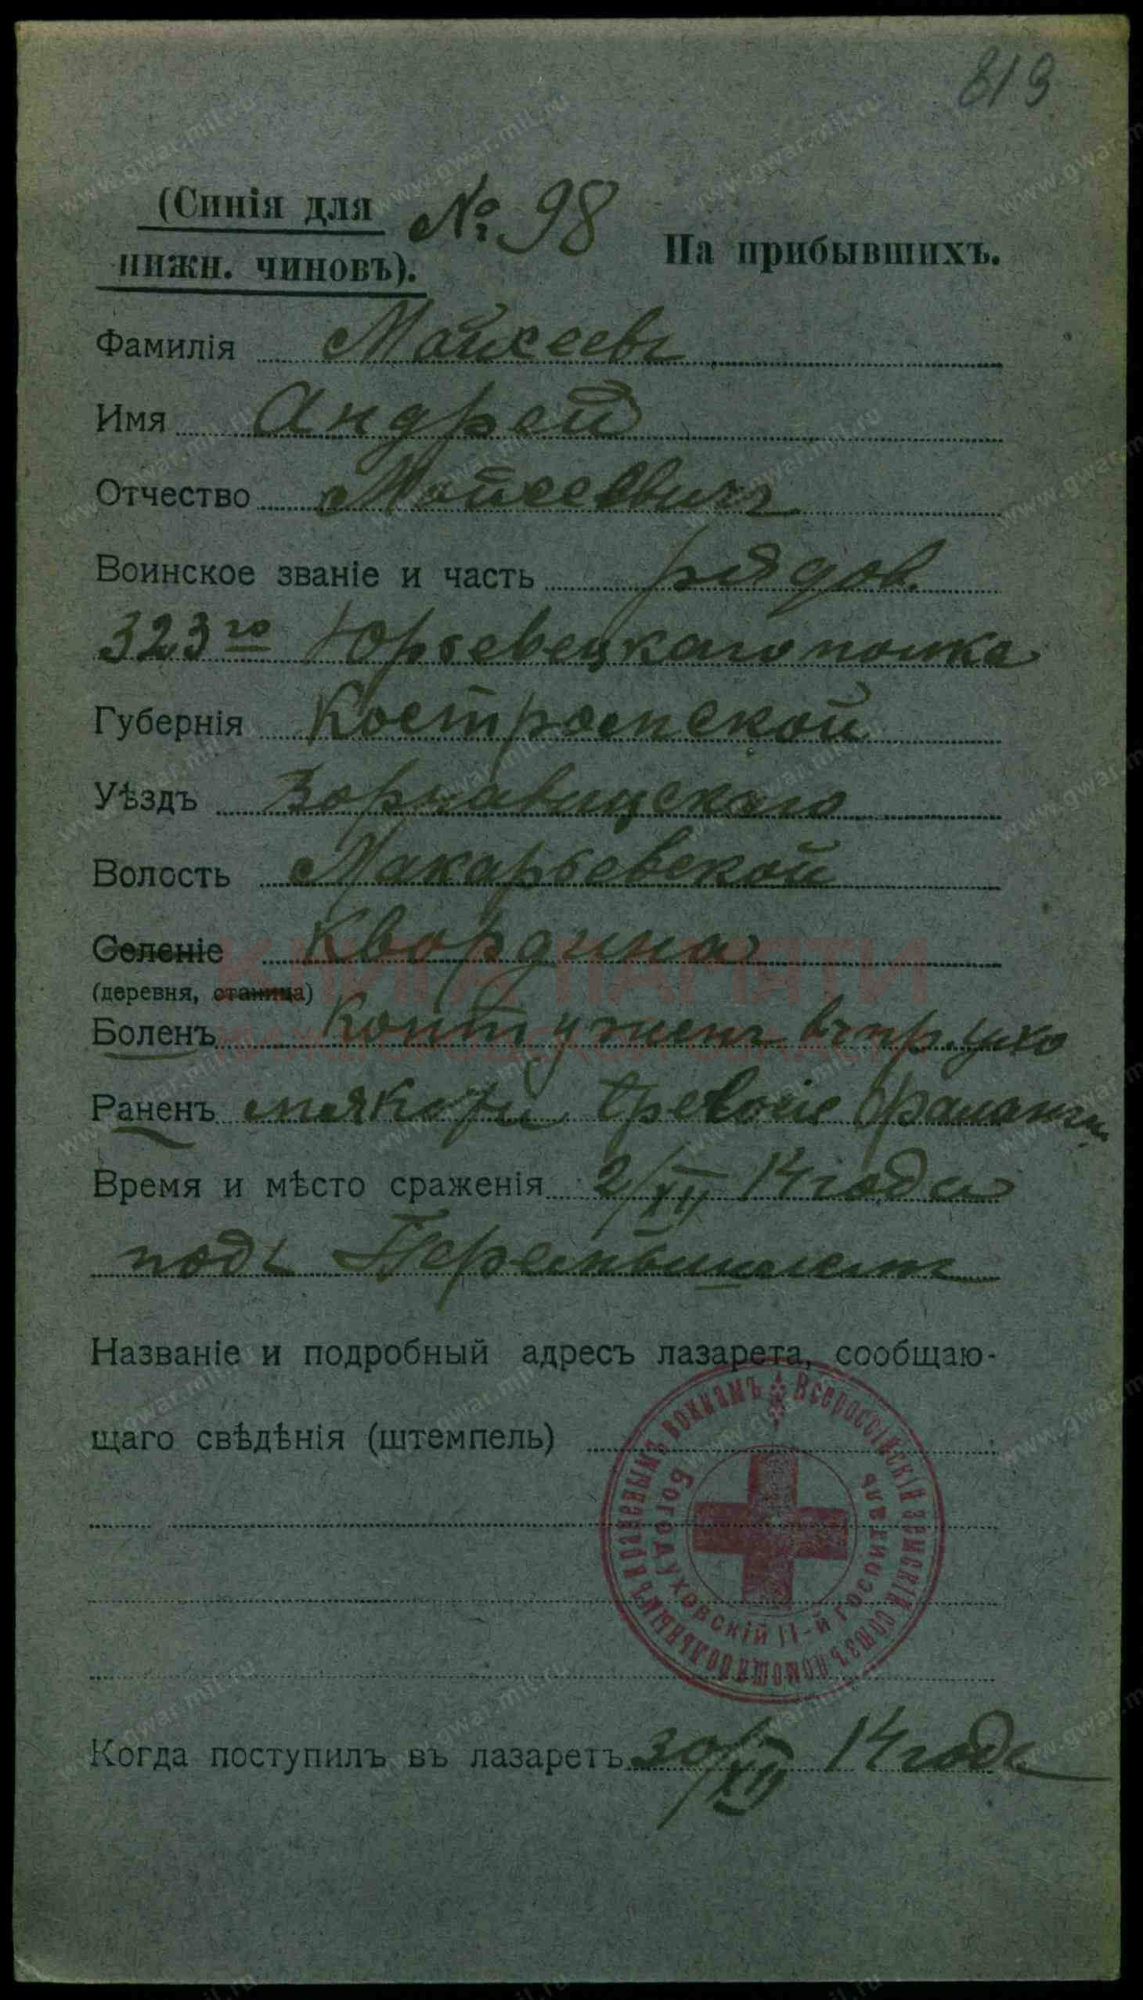 819
(Синія для № 98 На прибывшихъ.
нижн. чиновъ).
Фамилія Мойсеевъ
Имя Андрей
Отчество Мойсеевичъ
Воинское званіе и часть рядов.
323го Юрьевецкаго полка
Губернія Костромской
Уѣздъ
Волость Макарьевской
Селеніе
(деревня, станица)
Боленъ Контуженъ въ пр. ухо
Раненъ фаланги
Время и мѣсто сраженія 2/XII 14 года
подъ Перемышлемъ
Названіе и подробный адресъ лазарета, сообщаю-
щаго свѣдѣнія (штемпель)
Всероссійскій Земскій союзъ помощи больнымъ и раненымъ воинамъ
Богодуховскій II-й госпиталь
Когда поступилъ въ лазаретъ 30/XII 14 года
КНИГА ПАМЯТИ
www.gwar.mil.ru